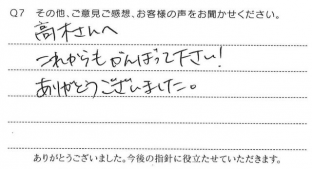 Q7 その他、ご意見ご感想、お客様の声をお聞かせください。
高木さんへ
これからもがんばって下さい!
ありがとうございました。
ありがとうございました。今後の指針に役立たせていただきます。